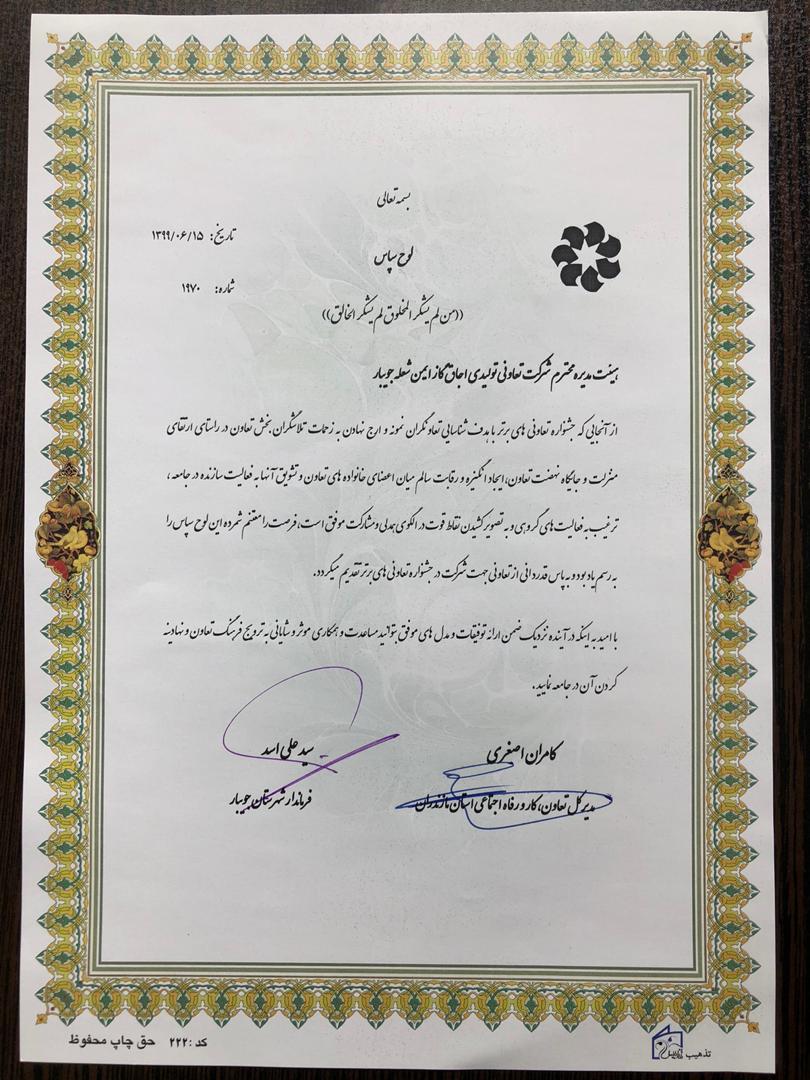 بسمه تعالی
تاریخ: ۱۳۹۹/۰۶/۱۵
لوح سپاس
شماره: ۱۹۷۰
((من لم یشکر المخلوق لم یشکر الخالق))
هیئت مدیره محترم شرکت تعاونی تولیدی اجاق گاز ایمن شعله جویبار
از آنجایی که جشنواره تعاونی های برتر با هدف شناسایی تعاونگران نمونه و ارج نهادن به زحمات تلاشگران بخش تعاون در راستای ارتقای
منزلت و جایگاه نهضت تعاون، ایجاد انگیزه و رقابت سالم میان اعضای خانواده های تعاون و تشویق آنها به فعالیت سازنده در جامعه ،
ترغیب به فعالیت های گروهی و به تصویر کشیدن نقاط قوت در الگوی همدلی و مشارکت موفق است، فرصت را مغتنم شمرده این لوح سپاس را
به رسم یادبود و به پاس قدردانی از تعاونی جهت شرکت در جشنواره تعاونی های برتر تقدیم میگردد.
با امید به اینکه در آینده نزدیک ضمن ارائه توفیقات و مدل های موفق بتوانید مساعدت و همکاری موثر و شایانی به ترویج فرهنگ تعاون و نهادینه
کردن آن در جامعه نمایید.
کامران اصغری
سید علی اسد
مدیرکل تعاون، کار و رفاه اجتماعی استان مازندران
فرماندار شهرستان جویبار
تذهیب
کد : ۲۲۲ حق چاپ محفوظ